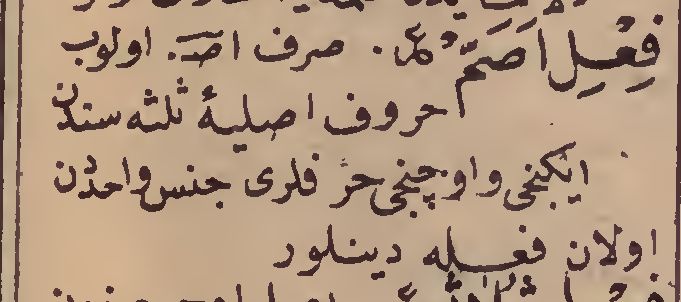 فِعْلِ اَصَمّ ع. صرف اصـ. اولوب
حروف اصلیهٔ ثلثه سندن
ایکنجی و اوچنجی حرفلری جنس واحدن
اولان فعله دینلور